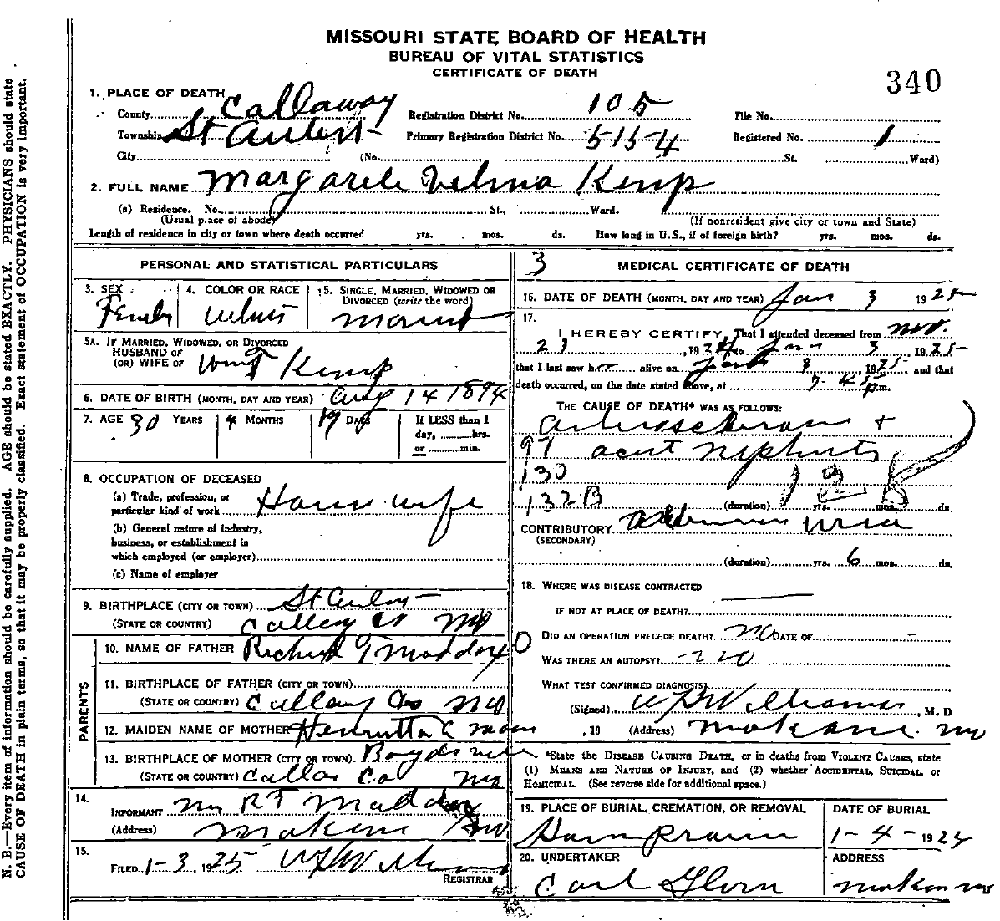 MISSOURI STATE BOARD OF HEALTH
BUREAU OF VITAL STATISTICS
CERTIFICATE OF DEATH
340
1. PLACE OF DEATH
County Callaway Registration District No. 105 File No.
Township St Aubert Primary Registration District No. 5154 Registered No. 1
City (No. St. Ward)
2. FULL NAME Margarete Velma Kemp
(a) Residence. No. St., Ward.
(Usual place of abode) (If nonresident give city or town and State)
Length of residence in city or town where death occurred yrs. mos. ds. How long in U.S., if of foreign birth? yrs. mos. ds.
PERSONAL AND STATISTICAL PARTICULARS
3. SEX 4. COLOR OR RACE 5. SINGLE, MARRIED, WIDOWED OR
DIVORCED (write the word)
Female White Married
5A. IF MARRIED, WIDOWED, OR DIVORCED
HUSBAND OF
(OR) WIFE OF Kemp
6. DATE OF BIRTH (MONTH, DAY AND YEAR) Aug 14 1894
7. AGE 30 YEARS 4 MONTHS 19 DAYS If LESS than 1
day, hrs.
or min.
8. OCCUPATION OF DECEASED
(a) Trade, profession, or
particular kind of work House wife
(b) General nature of industry,
business, or establishment in
which employed (or employer)
(c) Name of employer
9. BIRTHPLACE (CITY OR TOWN) St Aubert
(STATE OR COUNTRY) Callaway Co Mo
PARENTS
10. NAME OF FATHER Richard Maddox
11. BIRTHPLACE OF FATHER (CITY OR TOWN)
(STATE OR COUNTRY) Callaway Co Mo
12. MAIDEN NAME OF MOTHER Henrietta
13. BIRTHPLACE OF MOTHER (CITY OR TOWN)
(STATE OR COUNTRY) Co Mo
14.
INFORMANT R F Maddox
(Address) Mokane Mo
15.
FILED 1-3 1925 Williams
REGISTRAR
3 MEDICAL CERTIFICATE OF DEATH
16. DATE OF DEATH (MONTH, DAY AND YEAR) Jan 3 1925
17.
I HEREBY CERTIFY, That I attended deceased from Nov.
, 1924 to Jan 3 1925
that I last saw her alive on Jan 3 1925 and that
death occurred, on the date stated above, at m.
THE CAUSE OF DEATH* WAS AS FOLLOWS:
&
97 acut nephritis
130 128
132B (duration) yrs. mos. ds.
CONTRIBUTORY
(SECONDARY)
(duration) yrs. 6 mos. ds.
18. WHERE WAS DISEASE CONTRACTED
IF NOT AT PLACE OF DEATH?
DID AN OPERATION PRECEDE DEATH? No DATE OF
WAS THERE AN AUTOPSY? no
WHAT TEST CONFIRMED DIAGNOSIS?
(Signed) Williams, M. D
, 19 (Address) Mokane Mo
*State the DISEASE CAUSING DEATH, or in deaths from VIOLENT CAUSES, state
(1) MEANS AND NATURE OF INJURY, and (2) whether ACCIDENTAL, SUICIDAL, or
HOMICIDAL. (See reverse side for additional space.)
19. PLACE OF BURIAL, CREMATION, OR REMOVAL DATE OF BURIAL
1-4-1924
20. UNDERTAKER ADDRESS
Carl Mokane Mo
N. B.—Every item of information should be carefully supplied. AGE should be stated EXACTLY. PHYSICIANS should state
CAUSE OF DEATH in plain terms, so that it may be properly classified. Exact statement of OCCUPATION is very important.